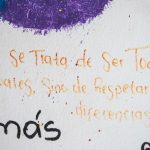 Se Trata de Ser Tod
uales, Sino de Respetar
diferencias
más